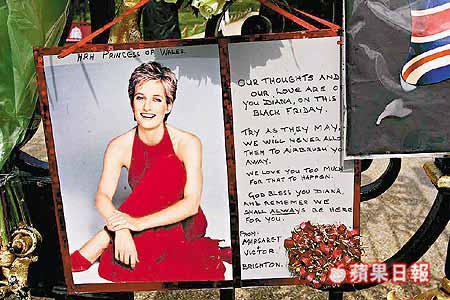 HRH PRINCESS OF WALES
OUR THOUGHTS AND
OUR LOVE ARE OF
YOU DIANA, ON THIS
BLACK FRIDAY.
TRY AS THEY MAY,
WE WILL NEVER ALLOW
THEM TO AIRBRUSH YOU
AWAY.
WE LOVE YOU TOO MUCH
FOR THAT TO HAPPEN.
GOD BLESS YOU DIANA,
AND REMEMBER WE
SHALL ALWAYS BE HERE
FOR YOU.
FROM:
MARGARET
VICTOR
BRIGHTON.
蘋果日報